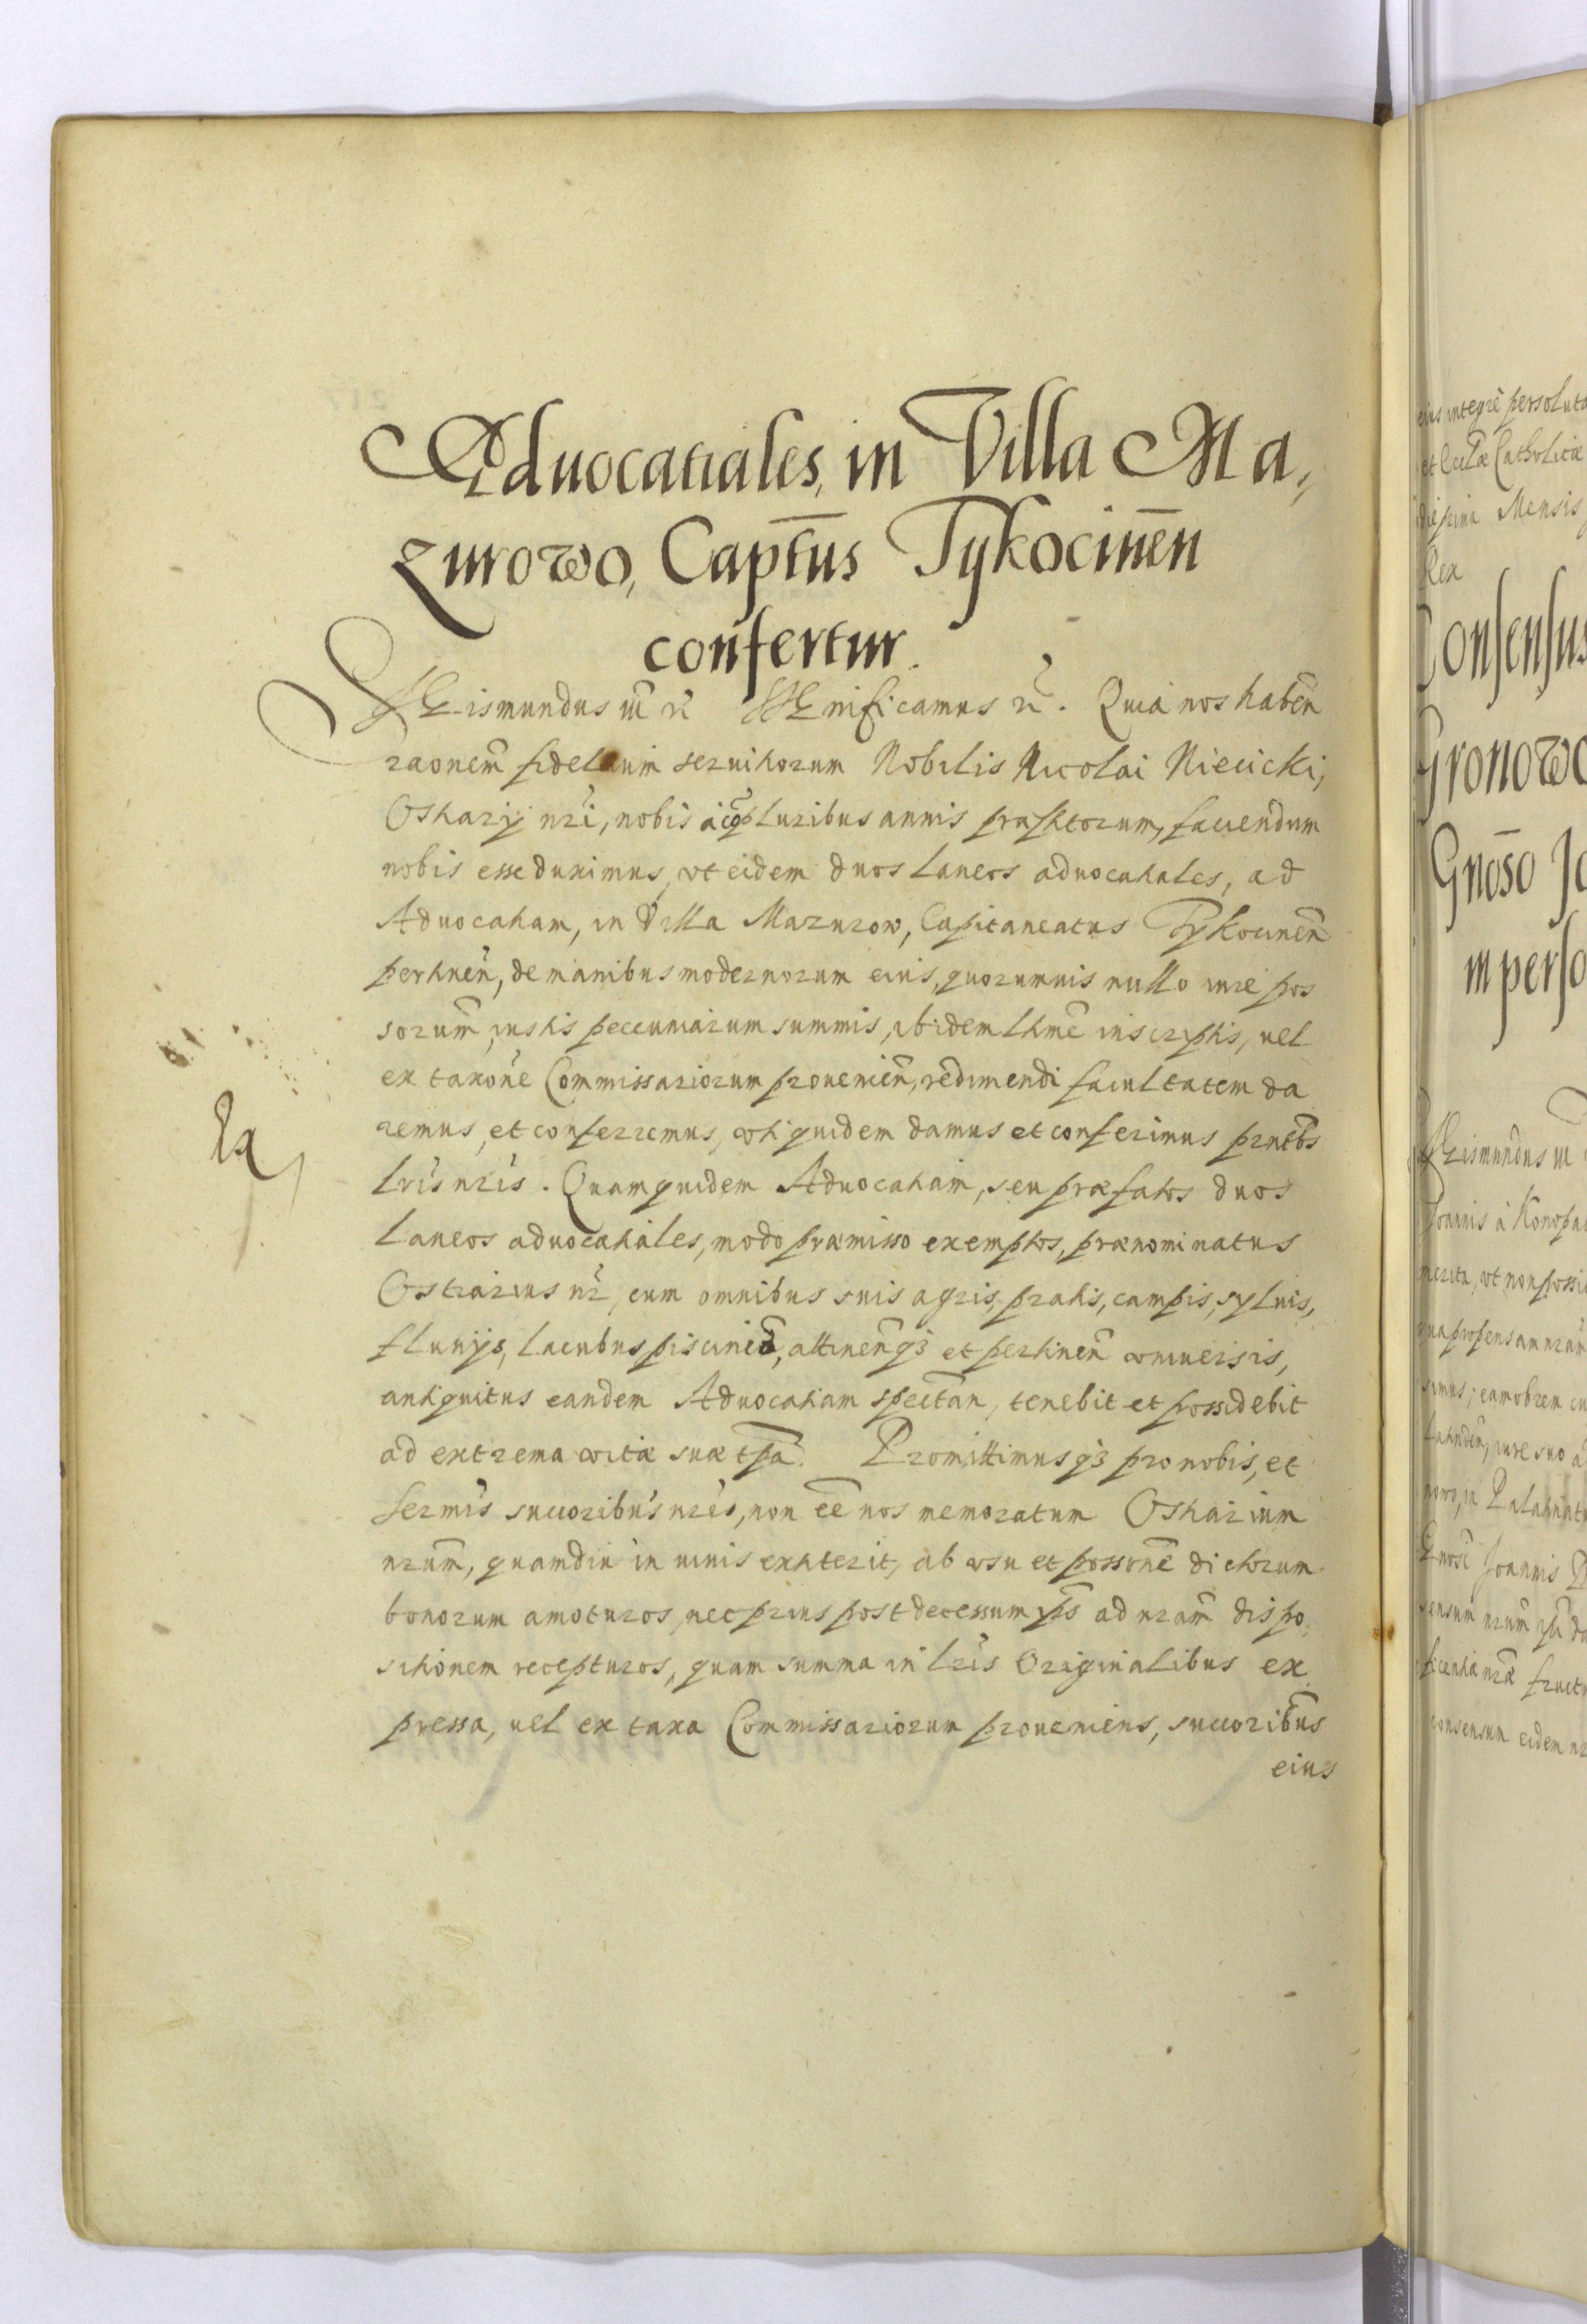 Aduocatiales, in Villa Ma,
zurowo, Capt̄us Tykocinēn
confertur.
Sigismundus iii etc̃ Significamus etc̃. Quia nos habeñ
raonem̃ fidelium seruitiorum Nobilis Nicolai Niecicki,
Ostiarij nr̃i, nobis à cõpluribus annis præstitorum, faciendum
nobis esse duximus, vt eidem duos laneos aduocatiales, ad
Aduocatiam, in Villa Mazurow, Capitaneatus Tykocineñ
pertineñ, de manibus modernorum eius, quorumuis nullo iure pos
sorum̃, iustis peccuniarum summis, ibidem lt̃ime inscriptis, uel
ex taxoñe Commissariorum prouenieñ, redimendi facultatem da
remus, et conferremus, vti quidem damus et conferimus pñtibs
lr̃is nr̃is. Quam quidem Aduocatiam, seu præfatos duos
laneos aduocatiales, modo præmisso exemptos, prænominatus
Ostiarius nr̃, cum omnibus suis agris, pratis, campis, syluis,
fluuijs, lacubus, piscinis, attineñq3 et pertineñ vniuersis,
antiquitus eandem Aduocatiam spectañ, tenebit et possidebit
ad extrema vitæ suæ tp̃a. Promittimusq3 pro nobis, et
Sermis succoribus nr̃is, non eẽ nos memoratum Ostiarium
nrum̃, quamdiu in uiuis extiterit, ab vsu et possoñe dictorum
bonorum amoturos, nec prius post decessum ip̃s ad nram̃ dispo,
sitionem recepturos, quam summa in lr̃is Originalibus ex
pressa, uel ex taxa Commissariorum proueniens, succoribus̃
eius
eius integrè persoluta
et Ecclæ Catholicæ
Mensis
Rex
Consensus
Gronowo
Gnōso Jo
in perso
Sigismundus iii
Joannis à Konopa
merita, vt non possi
qua propensam nram̃
simus, eamobrem cu
iure suo a
nowo, in Palatinatu
Gnosi Joannis
sensum nrum̃
ficentia nr̃æ fructu
consensum eidem nr